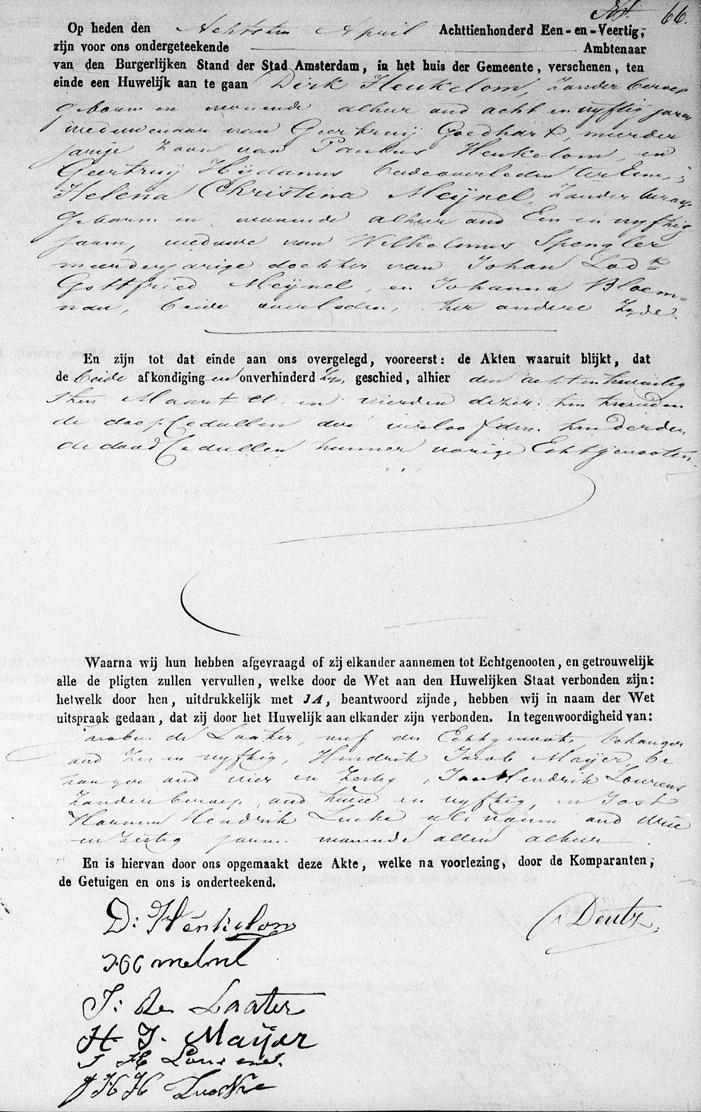 66.
Op heden den Achtsten April Achttienhonderd Een-en-Veertig,
zijn voor ons ondergeteekende Ambtenaar
van den Burgerlijken Stand der Stad Amsterdam, in het huis der Gemeente, verschenen, ten
einde een Huwelijk aan te gaan Dirk Henkelom, zonder beroep
geboren en wonende alhier oud acht en vyftig jaren
weduwenaar van Geertruij Goedhart, meerder
jarige zoon van Paulus Henkelom, en
Geertruij Hijdanus beide overleden ter Eene,;
Helena Christina Meijnel, zonder beroep
geboren en wonende alhier oud Een en vyftig
jaren, weduwe van Wilhelmus Spengler
meerderjarige dochter van Johan Lod
Gottfried Meijnel, en Johanna Bloem-
nau, beide overleden, ter andere Zyde.
En zijn tot dat einde aan ons overgelegd, vooreerst: de Akten waaruit blijkt, dat
de beide afkondiging en onverhinderd zyn, geschied, alhier den achtentwintig
sten Maart en vierden dezer. ten tweeden
de doop Cedullen der verloofden. ten derden
de dood Cedullen hunner vorige Echtgenooten.
Waarna wij hun hebben afgevraagd of zij elkander aannemen tot Echtgenooten, en getrouwelijk
alle de pligten zullen vervullen, welke door de Wet aan den Huwelijken Staat verbonden zijn:
hetwelk door hen, uitdrukkelijk met JA, beantwoord zijnde, hebben wij in naam der Wet
uitspraak gedaan, dat zij door het Huwelijk aan elkander zijn verbonden. In tegenwoordigheid van:
de Laater, neef der Echtgenoote, behanger
oud zes en vyftig, Hendrik Jacob Mayer, be
hanger oud vier en zestig, Jan Hendrik Lourens
zonder beroep, oud twee en vyftig, en Joost
Hendrik Lucke oud drie
en zestig jaren. wonende allen alhier
En is hiervan door ons opgemaakt deze Akte, welke na voorlezing, door de Komparanten,
de Getuigen en ons is onderteekend.
D: Henkelom
Deutz
HC meinel
J: de Laater
H J. Maijer
J H Lourens.
J H H Lucke